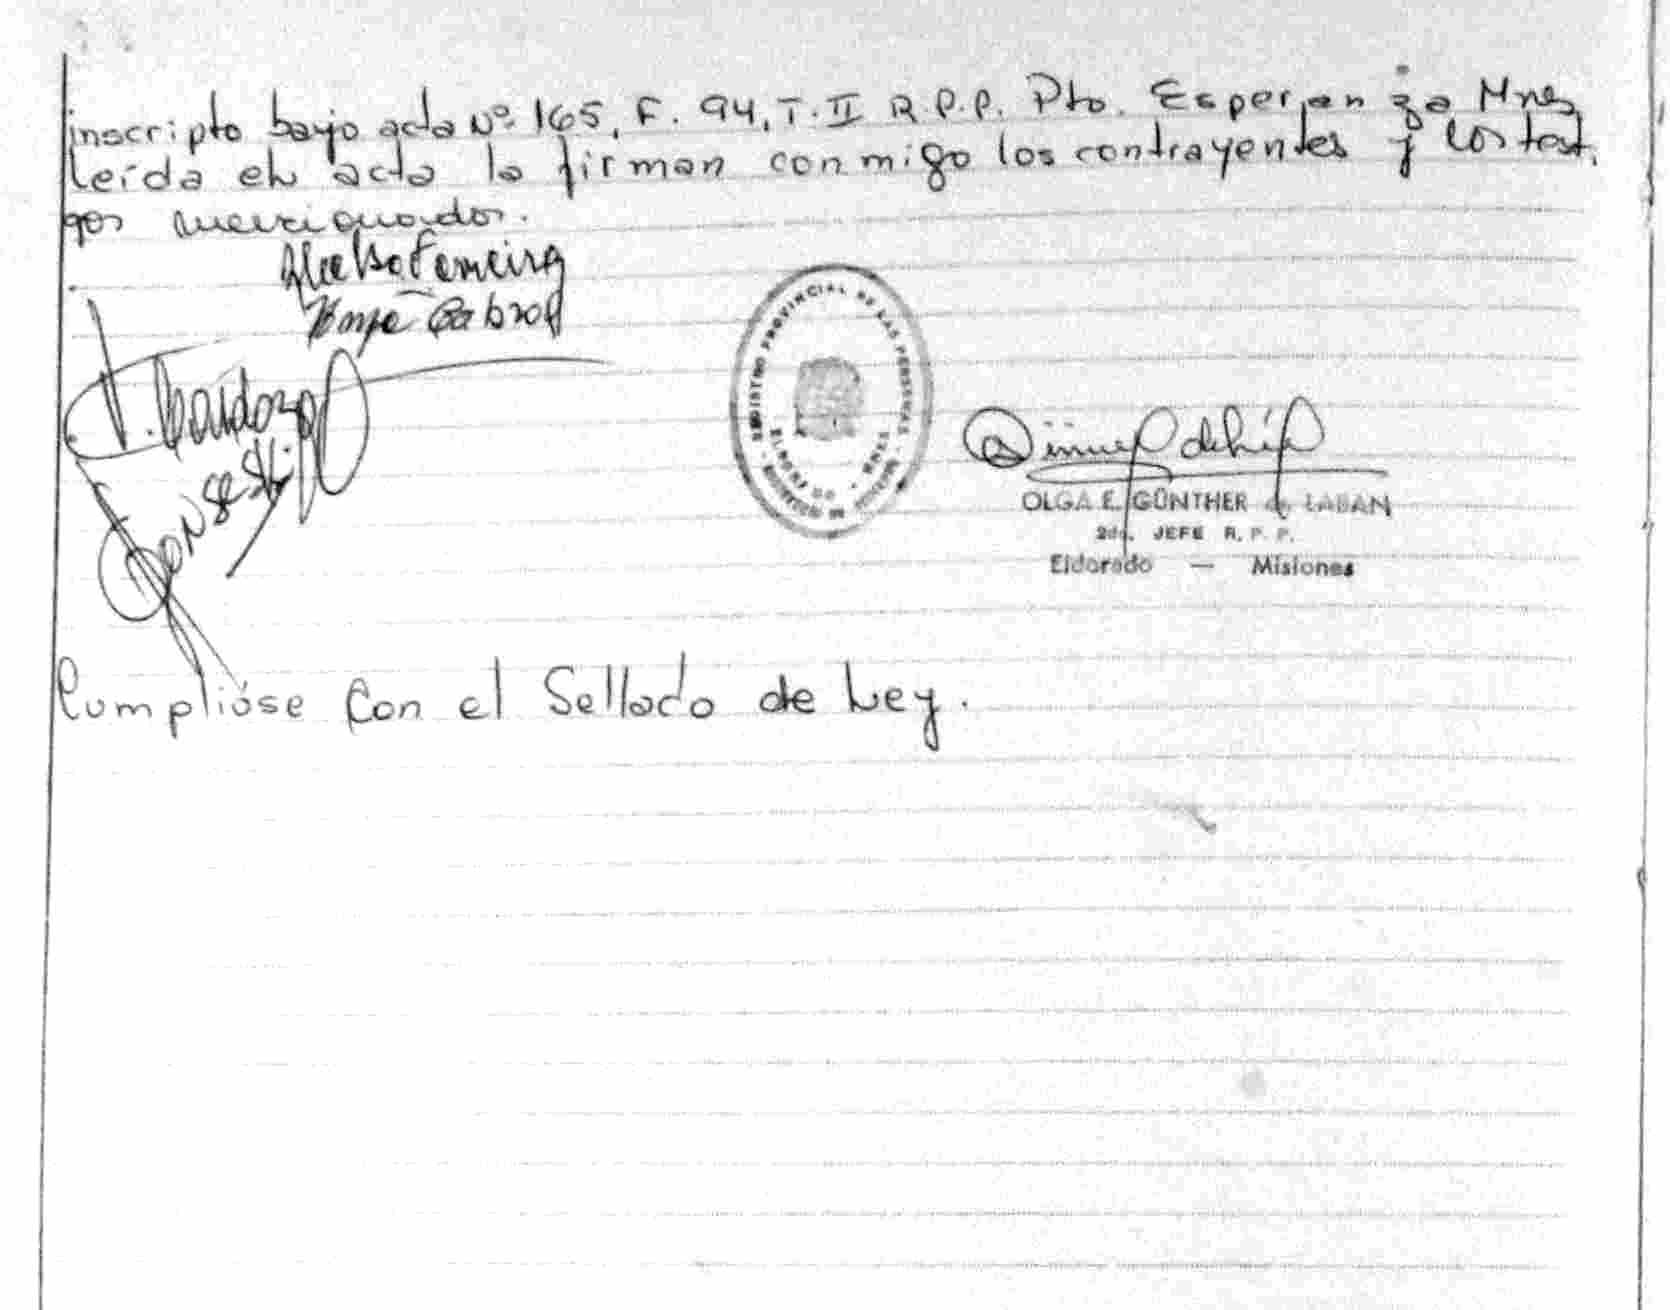 inscripto bajo acta Nº 165, F. 94, T. II R.P.P. Pto. Esperanza Mnes
leída el acta la firman conmigo los contrayentes y los testi
gos mencionados.
Ferreira
Cabral
V. Cardozo
REGISTRO PROVINCIAL DE LAS PERSONAS
ELDORADO
OLGA E. GÜNTHER de LABAN
2do. JEFE R. P. P.
Eldorado — Misiones
Cumplióse Con el Sellado de Ley.